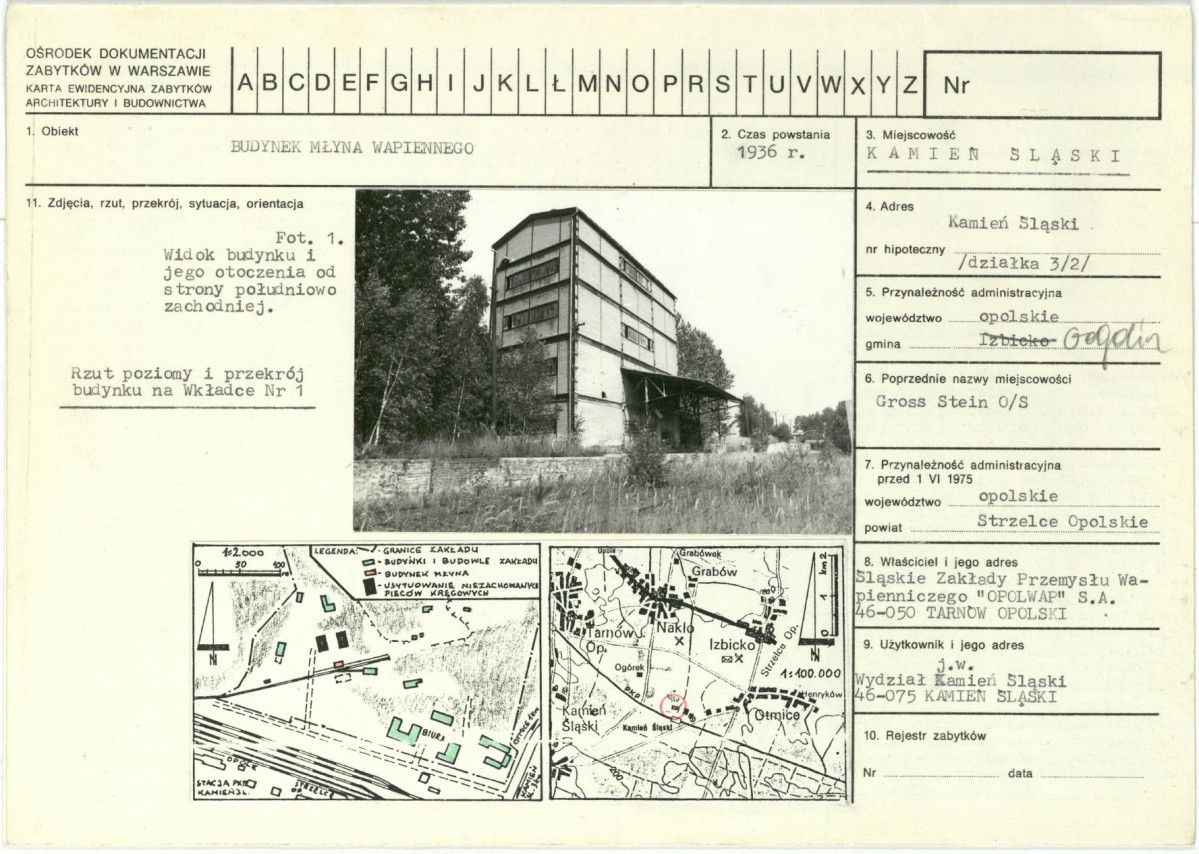 OŚRODEK DOKUMENTACJI
ZABYTKÓW W WARSZAWIE
KARTA EWIDENCYJNA ZABYTKÓW
ARCHITEKTURY I BUDOWNICTWA
A B C D E F G H I J K L Ł M N O P R S T U V W X Y Z
Nr
1. Obiekt
BUDYNEK MŁYNA WAPIENNEGO
2. Czas powstania
1936 r.
3. Miejscowość
KAMIEŃ ŚLĄSKI
11. Zdjęcia, rzut, przekrój, sytuacja, orientacja
Fot. 1.
Widok budynku i
jego otoczenia od
strony południowo
zachodniej.
Rzut poziomy i przekrój
budynku na Wkładce Nr 1
4. Adres
Kamień Śląski
nr hipoteczny
/działka 3/2/
5. Przynależność administracyjna
województwo opolskie
gmina Izbicko
6. Poprzednie nazwy miejscowości
Gross Stein O/S
7. Przynależność administracyjna
przed 1 VI 1975
województwo opolskie
powiat Strzelce Opolskie
8. Właściciel i jego adres
Śląskie Zakłady Przemysłu Wa-
pienniczego "OPOLWAP" S.A.
46-050 TARNÓW OPOLSKI
9. Użytkownik i jego adres
j.w.
Wydział Kamień Śląski
46-075 KAMIEŃ ŚLĄSKI
10. Rejestr zabytków
Nr data
1:2.000
0 50 100
N
LEGENDA:
- GRANICE ZAKŁADU
- BUDYNKI I BUDOWLE ZAKŁADU
- BUDYNEK MŁYNA
- USYTUOWANIE NIEZACHOWANYCH
PIECÓW KRĘGOWYCH
BIURA
OPOLE
STACJA PKP
KAMIEŃ ŚL.
STRZELCE
OP.
OTMICE 1 KM
KAMIEŃ
ŚL. 3 KM
Opole
Grabówek
Grabów
km 2
1
0
Tarnów
Op.
Nakło
Izbicko
Strzelce Op.
N
1:100.000
Ogórek
PKP
Henryków
Kamień
Śląski
Kamień Śląski
Otmice
200